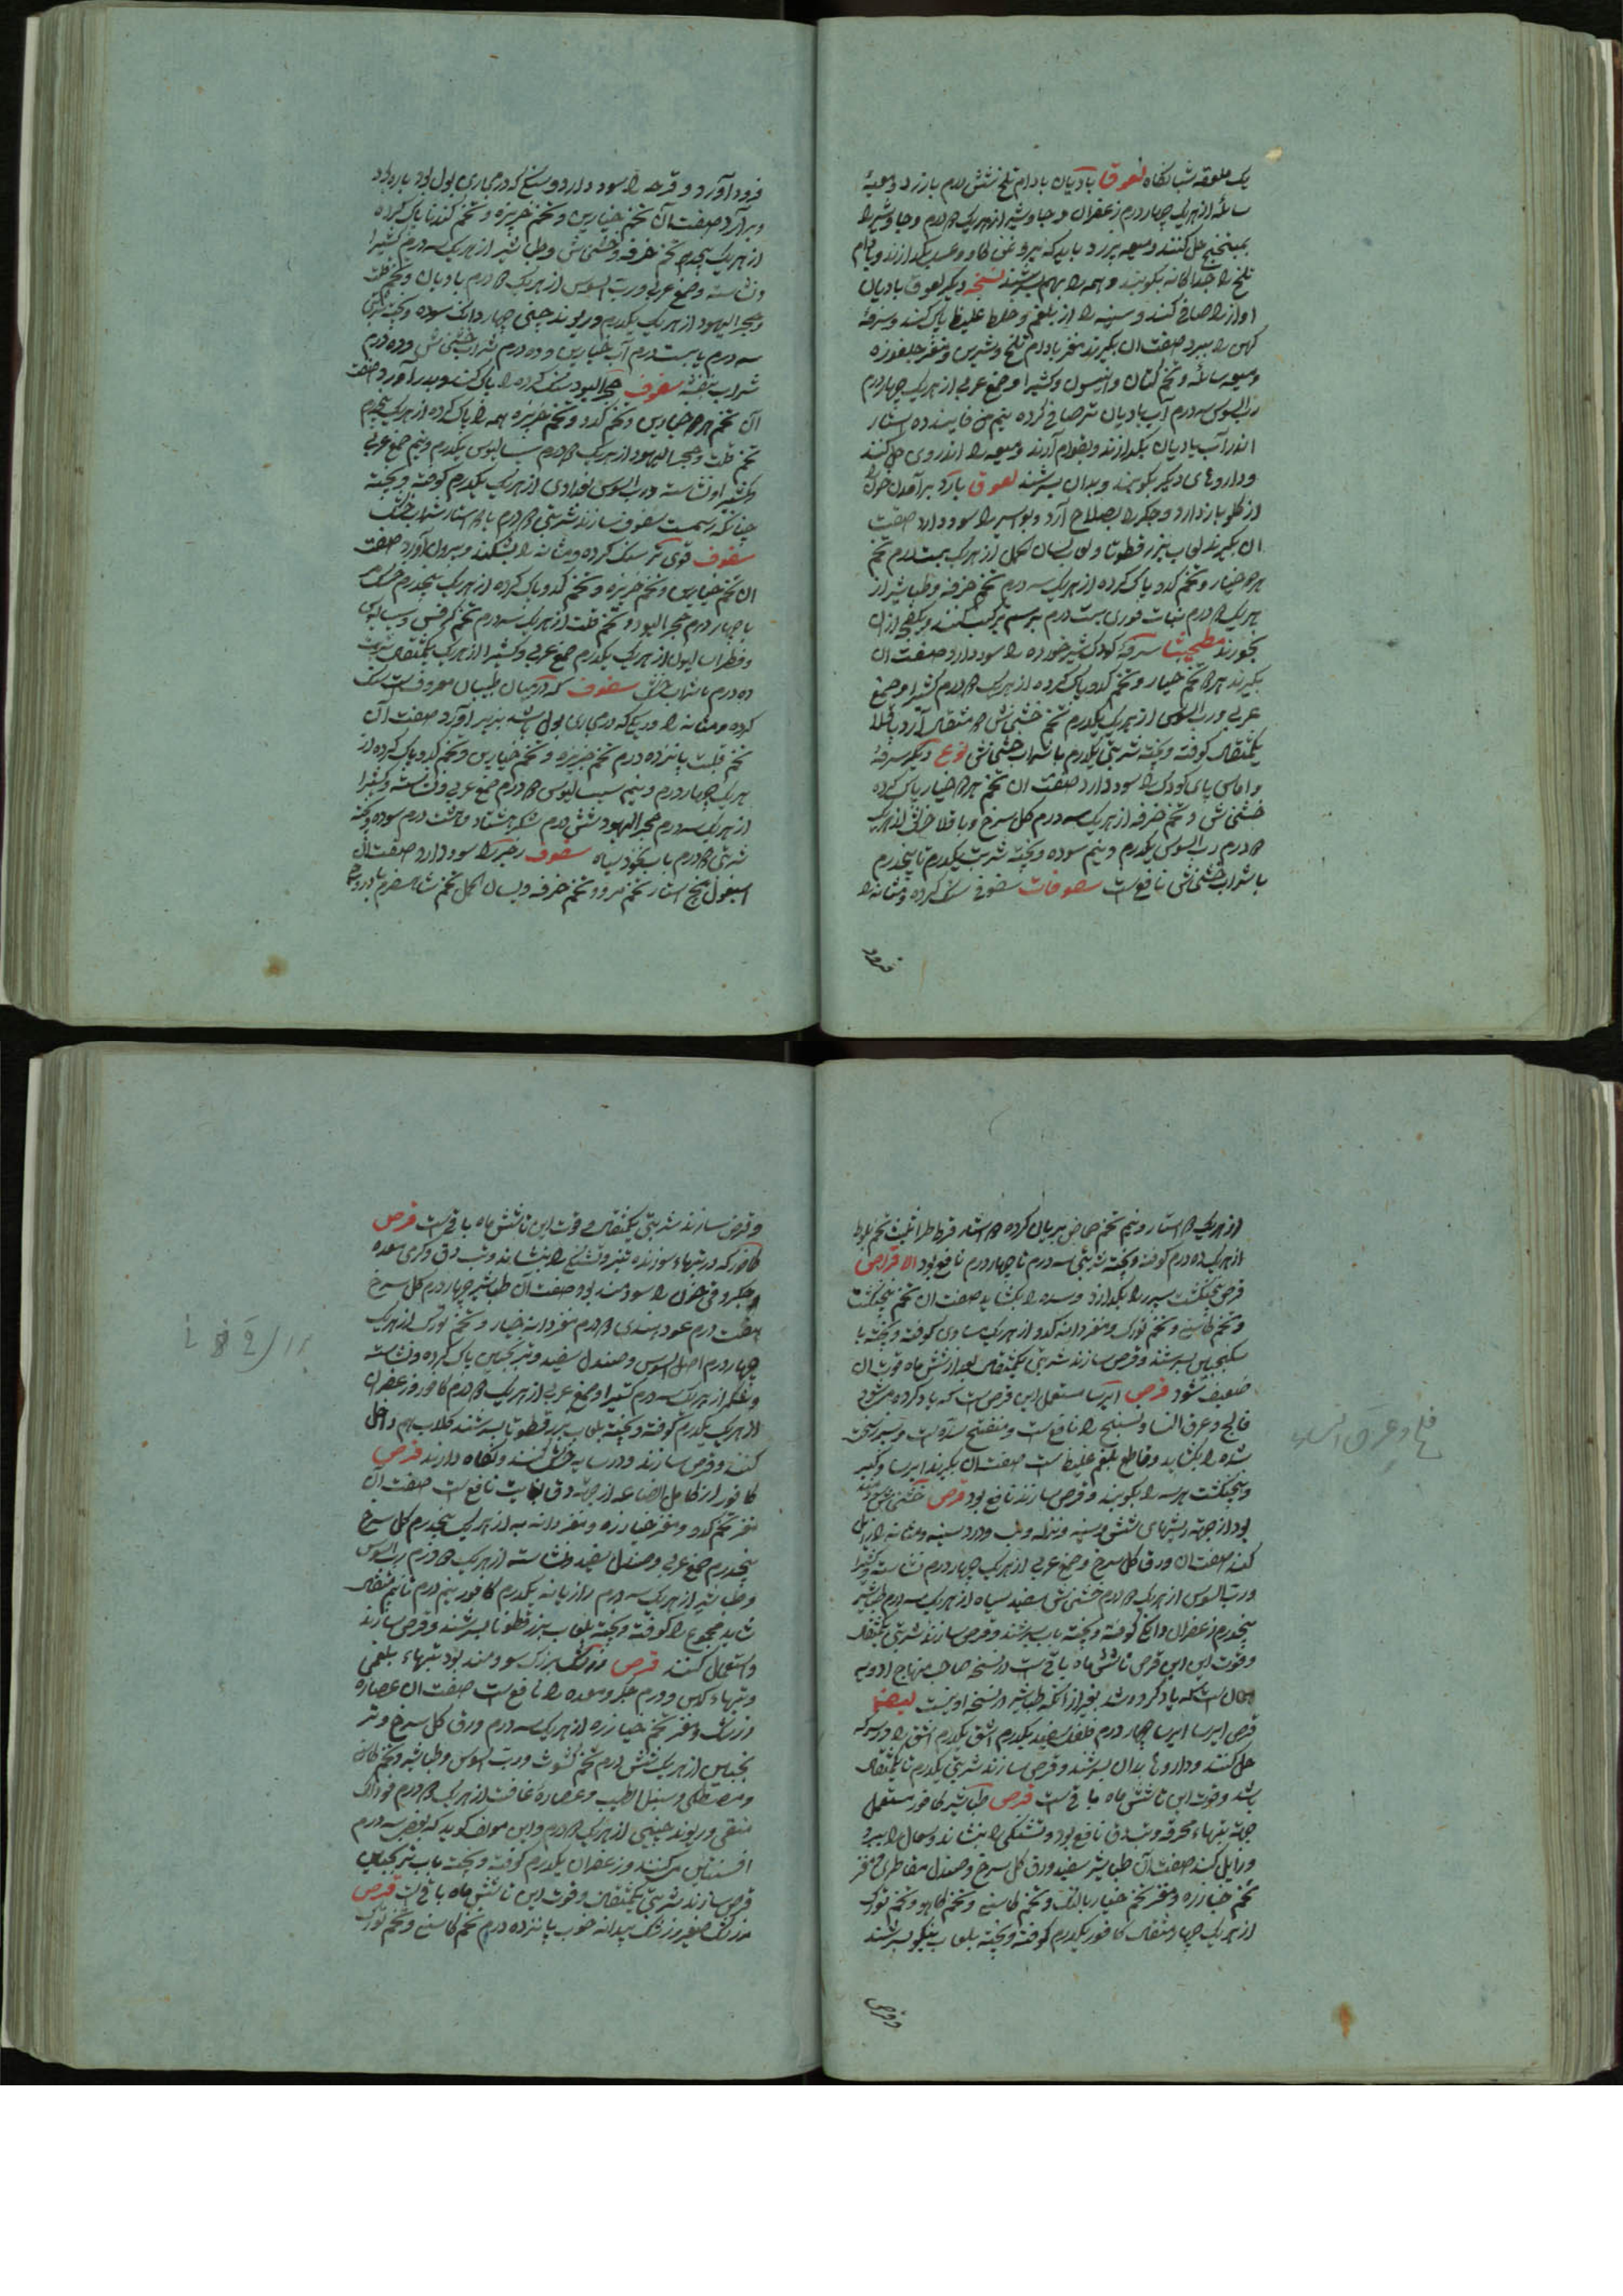 یک ملعقه شبانکاه لعوق بادیان بادام تلخ شش درم بارزد و میعهٔ
سائله از هریک چهار درم زعفران و جاوشیر از هریک درم و جاوشیر را
حل کنند و میعه بارزد با روغن کاو و عسل بکدازند و بادام
تلخ را جداکانه بکوبند و همه را بهم بسرشند نسخه دیکر لعوق بادیان
اواز را صافی کند و سینه را از بلغم و خلط غلیظ پاک کند و سرفهٔ
کهن را ببرد صفت ان بکیرند مغز بادام تلخ و شیرین و مغز جلغوزه
و میعه سائله و تخم کتان و انیسون و کثیرا و صمغ عربی از هریک چهار درم
رب السوس سه درم آب بادیان تر صافی کرده نیم من فانیذ ده استار
اندر آب بادیان بکدازند و بقوام آرند و میعه را اندر وی حل کنند
و داروهای دیکر بکوبند و بدان بسرشند لعوق بارد برآمدن خون
از کلو باز دارد و جکر را بصلاح آرد و بواسیر را سود دارد صفت
ان بکیرند لعاب بزر قطونا و لسان الحمل از هریک بیست درم تخم
خیار و تخم کدو پاک کرده از هریک سه درم تخم خرفه و طباشیر از
هریک درم نبات درم بیست درم ترکیب کنند و
بخورند مطبخ سرفهٔ کودک شیرخواره را سود دارد صفت ان
بکیرند تخم خیار و تخم کدو پاک کرده از هریک درم کثیرا و صمغ
عربی و رب السوس از هریک یکدرم تخم خشخاش مثقال آرد باقلا
یکمثقال کوفته و بیخته شربتی یکدرم با شراب خشخاش نوع دیکر سرفهٔ
و اماس پای کودک را سود دارد صفت ان تخم خیار پاک کرده
خشخاش و تخم خرفه از هریک سه درم کل سرخ و باقلا از هریک
درم رب السوس یکدرم و نیم سوده و بیخته شربت یکدرم تا پنجدرم
با شراب خشخاش نافع است سفوفات سفوفی سنک کرده و مثانه را
فرود
فرود آورد و قرحه را سود دارد و سنک که در مجاری بول بود پاره
و برآرد صفت آن تخم خیارین و تخم خربزه و تخم کدو پاک کرده
از هریک پنجدرم تخم خرفه و خشخاش و طباشیر از هریک سه درم کثیرا
و نشاسته و صمغ عربی و رب السوس از هریک درم بادیان و تخم قلت
و حجر الیهود از هریک یکدرم و ریوند چینی چهار دانک سوده و بیخته شربتی
سه درم با بیست درم آب خیارین و ده درم شراب خشخاش و ده درم
شراب بنفشه سفوف حجر الیهود سنک کرده را پاک کند و بدر آورد صفت
آن تخم خیارین و تخم کدو و تخم خربزه همه را پاک کرده از هریک پنجدرم
تخم قلت و حجر الیهود از هریک درم سسالیوس یکدرم و نیم صمغ عربی
و کثیرا و نشاسته و رب السوس بغدادی از هریک یکدرم کوفته و بیخته
چنانکه رسمست سفوف سازند شربتی درم با استار شراب
سفوف قوی تر سنک کرده و مثانه را بشکند و بیرون آورد صفت
ان تخم خیارین و تخم خربزه و تخم کدو پاک کرده از هریک پنجدرم
چهار درم حجر الیهود و تخم قلت از هریک سه درم تخم کرفس و سسالیوس
و فطراسالیون از هریک یکدرم صمغ عربی و کثیرا از هریک یکمثقال شربت
ده درم با شراب سفوف که در میان طبیبان معروف است سنک
کرده و مثانه را و ریک که در مجاری بول باشد بزیر آورد صفت آن
تخم قلت پانزده درم تخم خربزه و تخم خیارین و تخم کدو پاک کرده از
هریک چهار درم و نیم سسالیوس درم صمغ عربی و نشاسته و کثیرا
از هریک سه درم حجر الیهود شش درم شکر هشتاد و هشت درم سوده و بیخته
شربتی درم با آب نخود سیاه سفوف زحیر را سود دارد صفت آن
اسبغول پنج استار تخم مرو و تخم خرفه و لسان الحمل تخم شاهسفرم
از هریک استار و نیم تخم حماض بریان کرده استار قرط طراثیث تخم
از هریک ده درم کوفته و بیخته شربتی سه درم تا چهار درم نافع بود الاقراص
قرص پنجنکشت سپرز را بکدازد و سده را بکشاید صفت ان تخم پنجنکشت
و تخم کاسنی و تخم تورک و مغز دانه کدو از هریک مساوی کوفته و بیخته با
سکنجبین بسرشند و قرص سازند شربتی یکمثقال بعد از شش ماه قوت ان
ضعیف شود قرص ایرسا مستعمل این قرص است که یاد کرده میشود
فالج و عرق النسا و تشنج را نافع است و مفتح سده است و سپرز سخت
شده را بکشاید و قاطع بلغم غلیظ است صفت ان بکیرند ایرسا و کبر
و پنجنکشت هر سه را بکوبند و قرص سازند نافع بود قرص خشخاش سودمند
بود از جهة ریشهای شش و سینه و نزله و تب و درد سینه و مثانه را زایل
کند صفت ان ورق کل سرخ و صمغ عربی از هریک چهار درم نشاسته و کثیرا
و رب السوس از هریک درم خشخاش سفید سیاه از هریک سه درم طباشیر
پنجدرم زعفران دانک کوفته و بیخته بآب بسرشند و قرص سازند شربتی یکمثقال
و قوت این قرص تا شش ماه باقیست در نسخه صاحب منهاج ادویه
همان است که یاد کرده شد بغیر از آنکه طباشیر در نسخه او نیست
قرص ایرسا ایرسا چهار درم فلفل سفید یکدرم اشق یکدرم اشق را در سرکه
حل کنند و داروها بدان بسرشند و قرص سازند شربتی یکدرم تا یکمثقال
باشد و قوت این تا شش ماه باقیست قرص طباشیر کافور مستعمل
جهة تبهاء محرقه و دق نافع بود و تشنکی را بنشاند و سعال را ببرد
و زایل کند صفت آن طباشیر سفید ورق کل سرخ و صندل مقاصری مغز
تخم خیارزه و مغز تخم خیار بالنک و تخم کاسنی و تخم کاهو و تخم تورک
از هریک چهار مثقال کافور یکدرم کوفته و بیخته بلعاب اسبغول بسرشند
و قرص
فالج و عرق النسا
و قرص سازند شربتی یکمثقال و قوت این تا شش ماه باقیست قرص
کافور که در تبهاء سوزنده تیز و تشنکی را بنشاند و تب دق و کرمی معده
و جکر و قی خون را سودمند بود صفت آن طباشیر چهار درم کل سرخ
هفت درم عود هندی درم مغز دانه خیار و تخم تورک از هریک
چهار درم اصل السوس و صندل سفید و ترنجبین پاک کرده و نشاسته
و شکر از هریک سه درم کثیرا و صمغ عربی از هریک درم کافور و زعفران
از هریک یکدرم کوفته و بیخته بلعاب بزر قطونا بسرشند کلاب هم داخل
کنند و قرص سازند و در سایه خشک کنند و نکاه دارند قرص
کافور از کامل الصناعه از جهة دق بغایت نافع است صفت آن
مغز تخم کدو و مغز خیارزه و مغز دانه به از هریک پنجدرم کل سرخ
پنجدرم صمغ عربی و صندل سفید و نشاسته از هریک درم رب السوس
و طباشیر از هریک سه درم رازیانه یکدرم کافور نیم درم تا نیم مثقال
شاید مجموع را کوفته و بیخته بلعاب بزر قطونا بسرشند و قرص سازند
و استعمال کنند قرص زرشک بزرک سودمند بود تبهاء بلغمی
و تبهاء کهن و ورم جکر و معده را نافع است صفت ان عصاره
زرشک و مغز تخم خیارزه از هریک سه درم ورق کل سرخ و تر
نجبین از هریک شش درم تخم کشوث و رب السوس و طباشیر و تخم کاسنی
و مصطکی و سنبل الطیب و عصاره غافت از هریک درم فوه لک
منقی و ریوند چینی از هریک درم و این مولف کوید که بعضی سه درم
افسنتین کنند و زعفران یکدرم کوفته و بیخته بآب ترنجبین
قرص سازند شربتی یکمثقال و قوت این تا شش ماه باقیست قرص
زرشک صغیر زرشک بیدانه خوب پانزده درم تخم کاسنی و تخم تورک